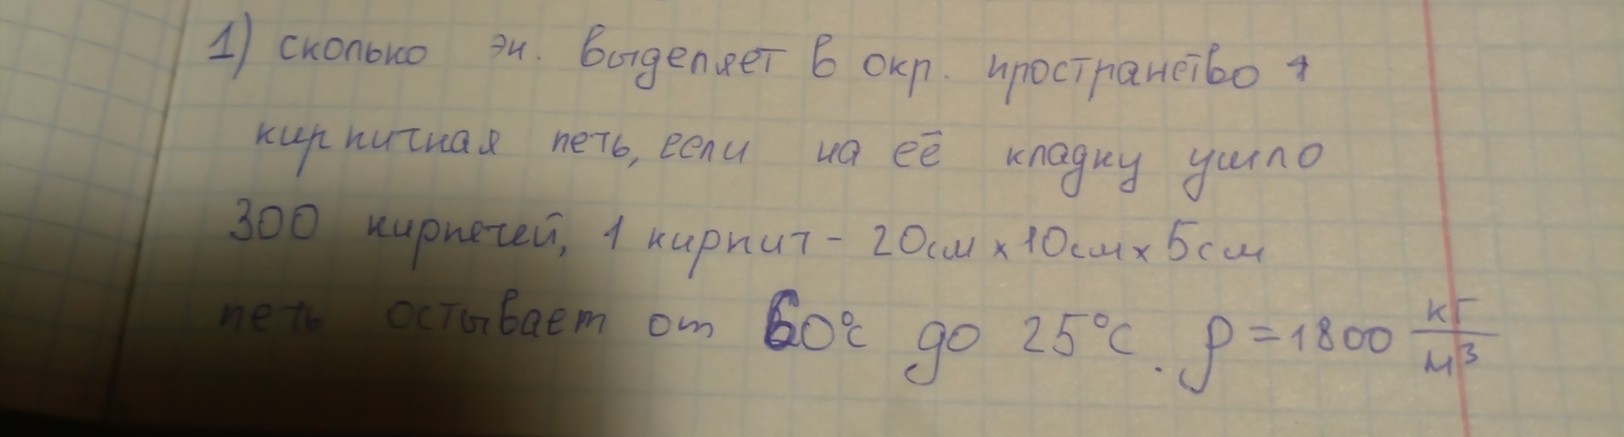 1) сколько эн. выделяет в окр. пространство
кирпичная печь, если на её кладку ушло
300 кирпечей, 1 кирпич - 20см х 10см х 5см
печь остывает от 60°С до 25°С. ρ = 1800 кг/м³